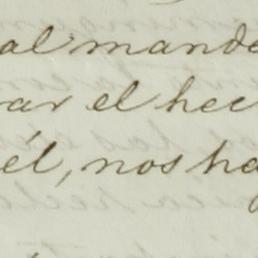 al mande
rar el hec
él, nos ha